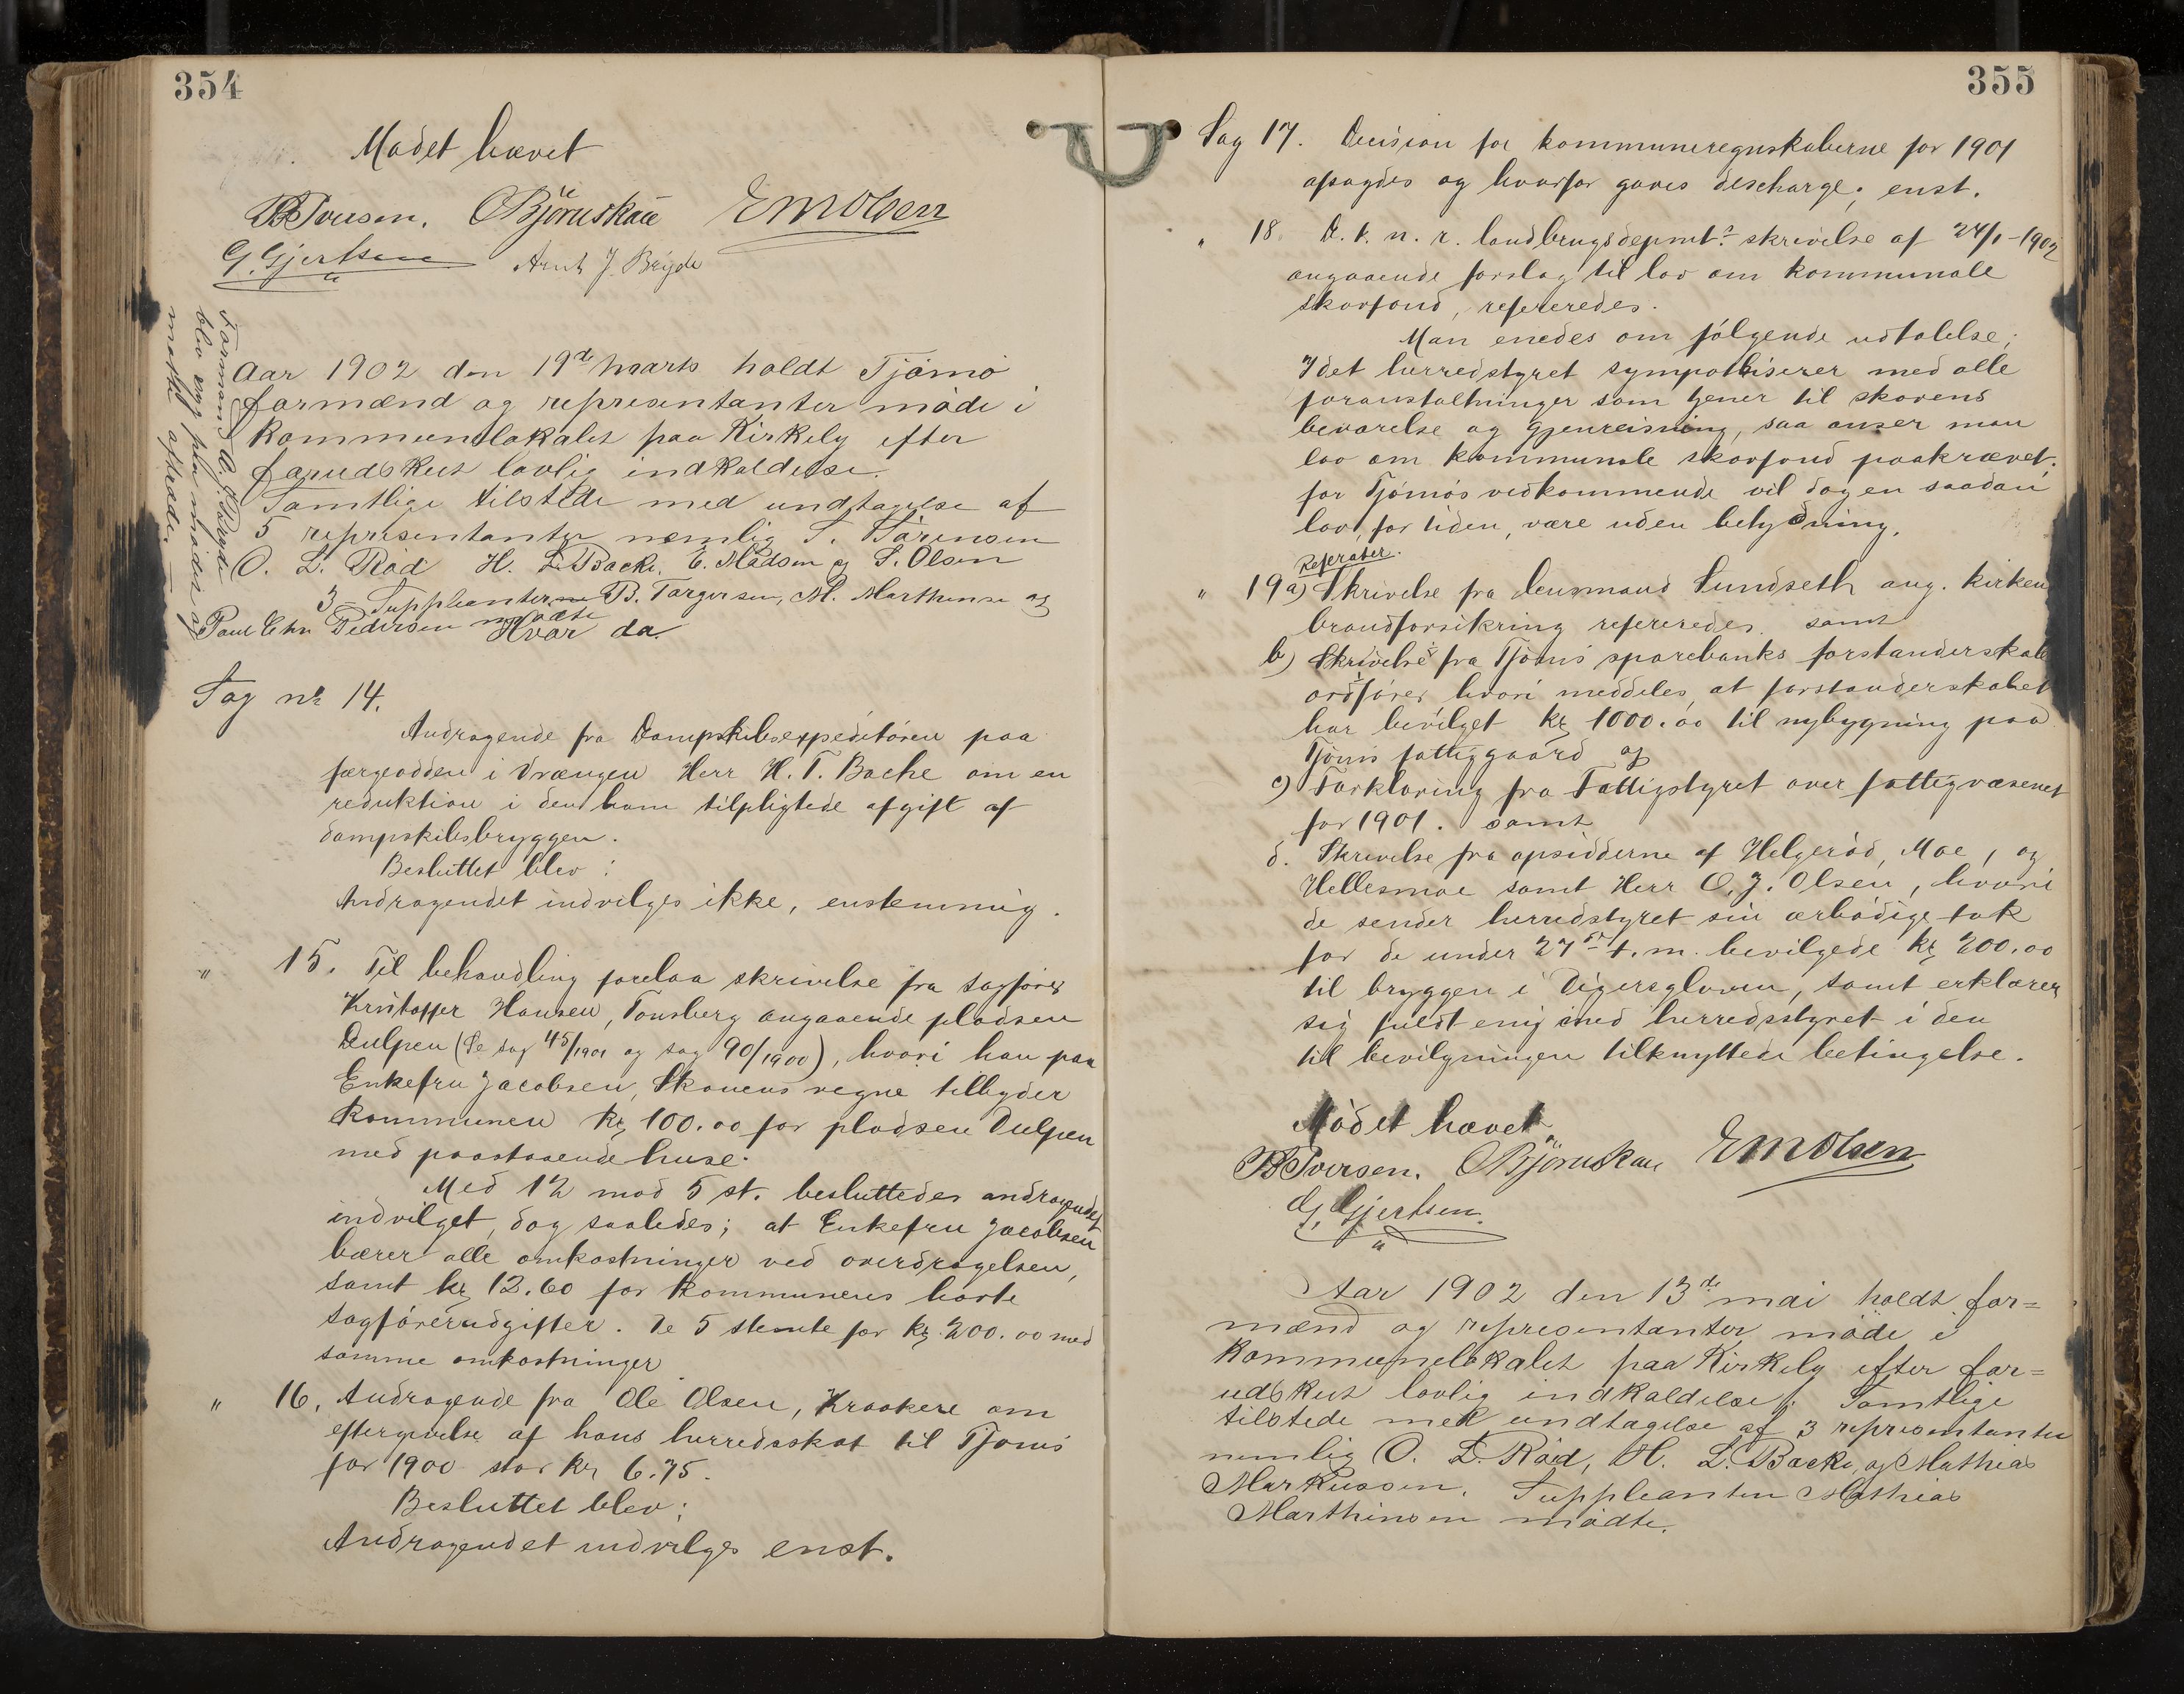 354
Mødet hævet
B Iversen. O Bjørnskau E M Olsen
G. Gjertsen Arnt J. Bryde
Formand A. J.
blev syg paa mødet og
maatte aftræde.
Aar 1902 den 19de marts holdt Tjømø
formænd og representanter møde i
Kommunelokalet paa Kirkely efter
forudskut lovlig indkaldelse.
Samtlige tilstede med undtagelse af
5 representanter nemlig S. Sørensen
O. L. Rød H. L. Backe, E. Madsen og S. Olsen
3 Suppleanterne B. Torgersen, M. Marthinsen og
Paul Chr Pedersen mødte
Hvor da
Sag no 14.
Andragende fra Dampskibsexpeditøren paa
færgeodden i Vrængen Herr H. T. Bache om en
reduktion i den ham tilpligtede afgift af
dampskibsbryggen.
Besluttet blev:
Andragendet indvilges ikke, enstemmig.
" 15. Til behandling forelaa skrivelse fra sagfører
Kristoffer Hansen, Tønsberg angaaende pladsen
Dulpen (Se sag 45/1901 og sag 90/1900), hvori han paa
Enkefru Jacobsen, Skauens vegne tilbyder
Kommunen kr 100.00 for pladsen Dulpen
med paastaaende huse.
Med 12 mod 5 st. besluttedes andragendet
indvilget, dog saaledes; at Enkefru Jacobsen
bærer alle omkostninger ved overdragelsen,
samt kr 12.60 for kommunens havte
sagførerudgifter. De 5 stemte for kr 200.00 med
samme omkostninger
" 16. Andragende fra Ole Olsen, Kraakere om
eftergivelse af hans herredsskat til Tjømø
for 1900 stor kr 6.75.
Besluttet blev:
Andragendet indvilges enst.
355
Sag 17. Decision for kommuneregnskaberne for 1901
afsagdes og hvorfor gaves decharge, enst.
" 18. D. k. n. r. landbrugsdepmts skrivelse af 24/1-1902
angaaende forslag til lov om kommunale
skovfond, refereredes.
Man enedes om følgende udtalelse;
Idet herredstyret sympathiserer med alle
foranstaltninger som tjener til skovens
bevarelse og gjenreisning, saa anser man
lov om kommunale skovfond paakrævet.
for Tjømøs vedkommende vil dog en saadan
lov, for tiden, være uden betydning.
Referater.
" 19 a) Skrivelse fra lensmand Sundseth ang. kirken
brandforsikring refereredes. samt
b) Skrivelse fra Tjømø sparebanks forstanderskabs
ordfører hvori meddeles, at forstanderskabet
har bevilget kr 1000.00 til nybygning paa
Tjømø fattiggaard og
c) Forklaring fra Fattigstyret over fattigvæsenet
for 1901. samt
d. Skrivelse fra opsidderne af Helgerød, Moe, og
Hellesmoe samt Herr O. J. Olsen, hvori
de sender herredstyret sin ærbødige tak
for de under 27de f. m. bevilgede kr 200.00
til bryggen i Digersgloven, samt erklærer
sig fuldt enig med herredsstyret i den
til bevilgningen tilknyttede betingelse.
Mødet hævet
B Iversen. O Bjørnskau E M Olsen
G. Gjertsen.
Aar 1902 den 13de mai holdt for=
mænd og representanter møde i
Kommunelokalet paa Kirkely efter for=
udskut lovlig indkaldelse. Samtlige
tilstede med undtagelse af 3 representanter
nemlig O. L. Rød, H. L. Backe, og Mathias
Markussen. Suppleanten Mathias
Marthinsen mødte.